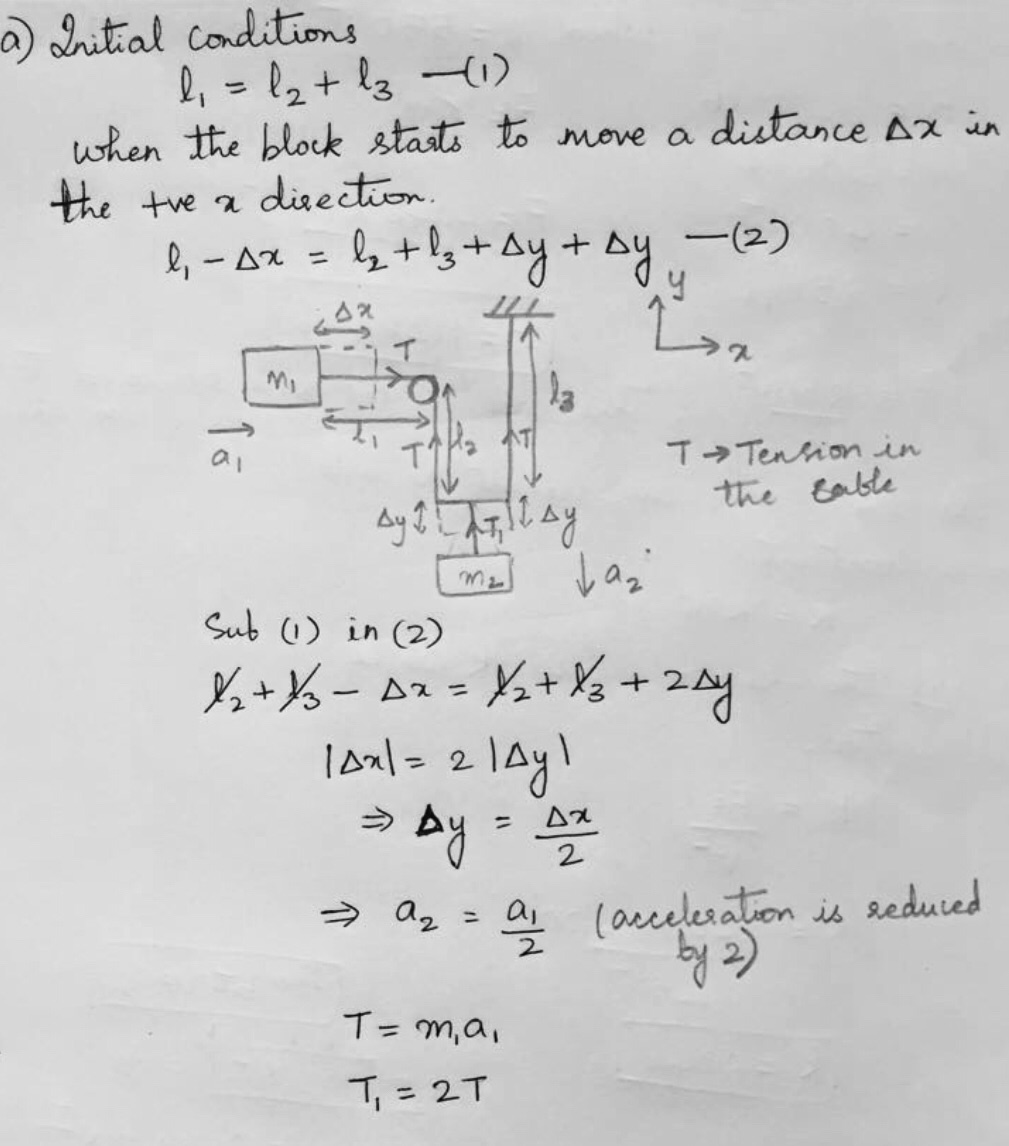 a) Initial conditions
l₁ = l₂ + l₃ —(1)
when the block starts to move a distance Δx in
the +ve x direction.
l₁ - Δx = l₂ + l₃ + Δy + Δy —(2)
y
x
Δx
m₁
T
l₁
a₁
T
l₂
T
l₃
T → Tension in
the cable
Δy
T₁
Δy
m₂
a₂
Sub (1) in (2)
l₂ + l₃ - Δx = l₂ + l₃ + 2Δy
|Δx| = 2 |Δy|
⇒ Δy = Δx/2
⇒ a₂ = a₁/2 (acceleration is reduced
by 2)
T = m₁a₁
T₁ = 2T